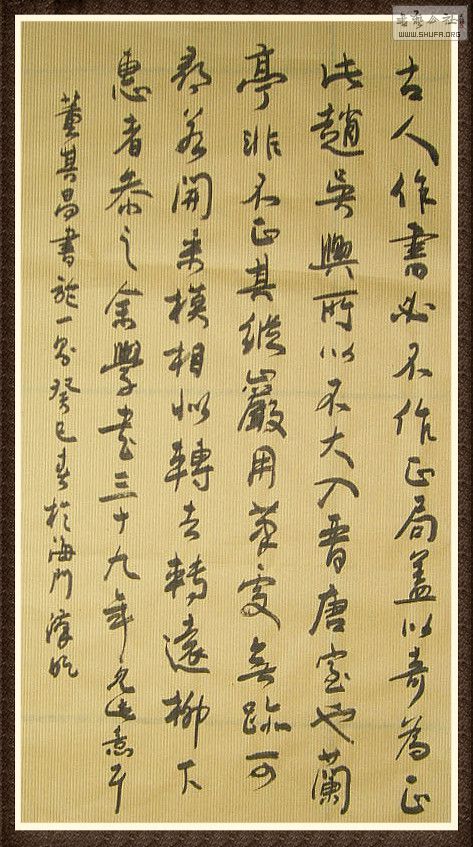 古人作書必不作正局蓋以奇為正
此趙吳興所以不大入晉唐室也蘭
亭非不正其縱巖用筆處無跡可
尋若開未模相似轉去轉遠柳下
惠者參之余學書三十九年見此意耳
董其昌書於一癸巳春於海門
書法公社
WWW.SHUFA.ORG